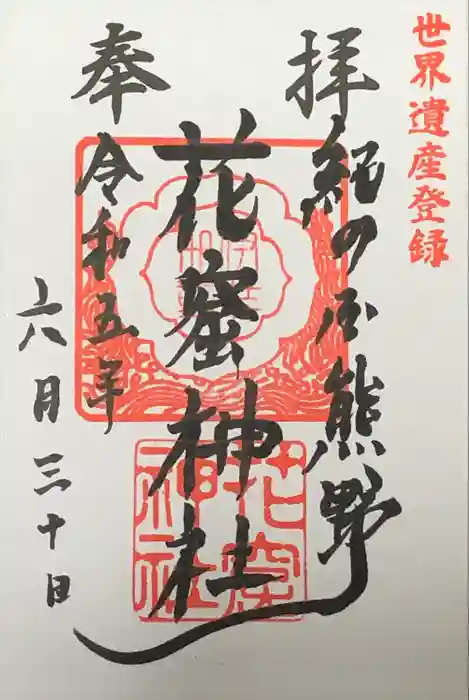 世界遺産登録
奉拝
紀の国熊野
花窟神社
令和五年
六月三十日
花窟神社